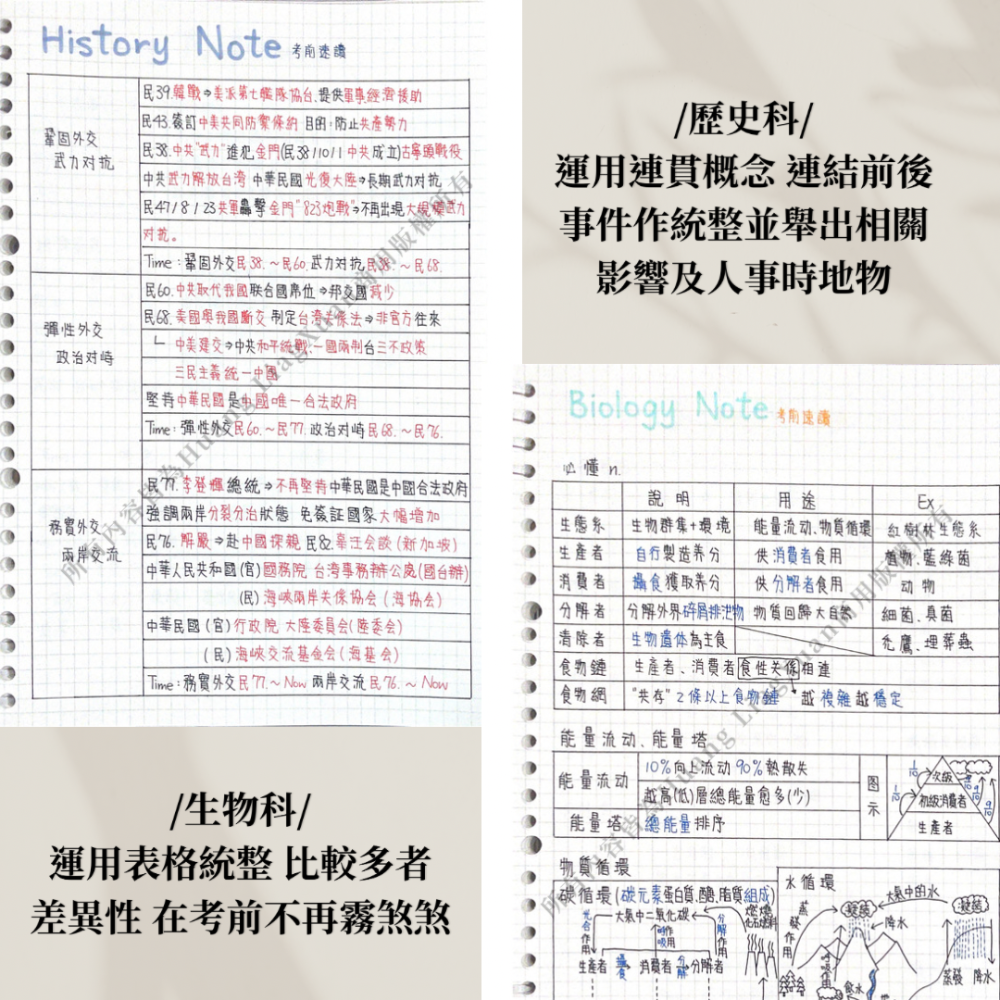 History Note 考前速讀
鞏固外交
武力对抗
民39.韓戰⇒美派第七艦隊協台.提供軍事經濟援助
民43.簽訂中美共同防禦條約 目的:防止共產勢力
民38.中共"武力"進犯金門(民38/10/1中共成立)古寧頭戰役
中共武力解放台湾 中華民國光復大陸⇒長期武力对抗
民47/8/23共軍轟擊金門"823炮戰"⇒不再出現大規模武力
对抗。
Time:鞏固外交民38.~民60.武力对抗民38.~民68.
彈性外交
政治对峙
民60.中共取代我國联合國席位⇒邦交國減少
民68.美國與我國斷交 制定台湾关係法⇒非官方往來
∟ 中美建交⇒中共和平統戰.一國兩制台三不政策
三民主義統一中國
堅持中華民國是中國唯一合法政府
Time:彈性外交民60.~民77.政治对峙民68.~民76.
務實外交
兩岸交流
民77.李登輝總統⇒不再堅持中華民國是中國合法政府
強調兩岸分裂分治狀態 免簽証國家大幅增加
民76.解嚴⇒赴中國探親 民82.辜汪会談(新加坡)
中華人民共和國(官)國務院 台湾事務辦公處(國台辦)
(民)海峽兩岸关係協会(海協会)
中華民國(官)行政院 大陸委員会(陸委会)
(民)海峽交流基金会(海基会)
Time:務實外交民77.~Now 兩岸交流民76.~Now
/歷史科/
運用連貫概念 連結前後
事件作統整並舉出相關
影響及人事時地物
/生物科/
運用表格統整 比較多者
差異性 在考前不再霧煞煞
Biology Note 考前速讀
必懂n.
說明 用途 Ex
生態系 生物群集+環境 能量流动.物質循環 紅樹林生態系
生產者 自行製造养分 供消費者食用 植物.藍綠菌
消費者 攝食獲取养分 供分解者食用 动物
分解者 分解外界碎屑排泄物 物質回歸大自然 細菌.真菌
清除者 生物遺体為主食 禿鷹.埋葬蟲
食物鏈 生產者、消費者食性关係相連
食物網 "共存"2條以上食物鏈 越複雜越穩定
能量流动、能量塔
能量流动 10%向上流动 90%熱散失
越高(低)層總能量愈多(少)
能量塔 總能量排序
图示
次級
初級消費者
生產者
1/10 1/10 9/10 9/10
物質循環
碳循環(碳元素蛋白質.醣.脂質組成)
光合作用 大氣中二氧化碳 分解作用 燃燒 化石燃料
呼吸作用
生產者 攝食 消費者 分解 分解者
水循環
大氣中的水
蒸發作用 凝結 降水 凝結
飲水
蒸發 降水
所有內容皆為Huang LiagXuan商用版權所有
所有內容皆為Huang LiagXuan商用版權所有